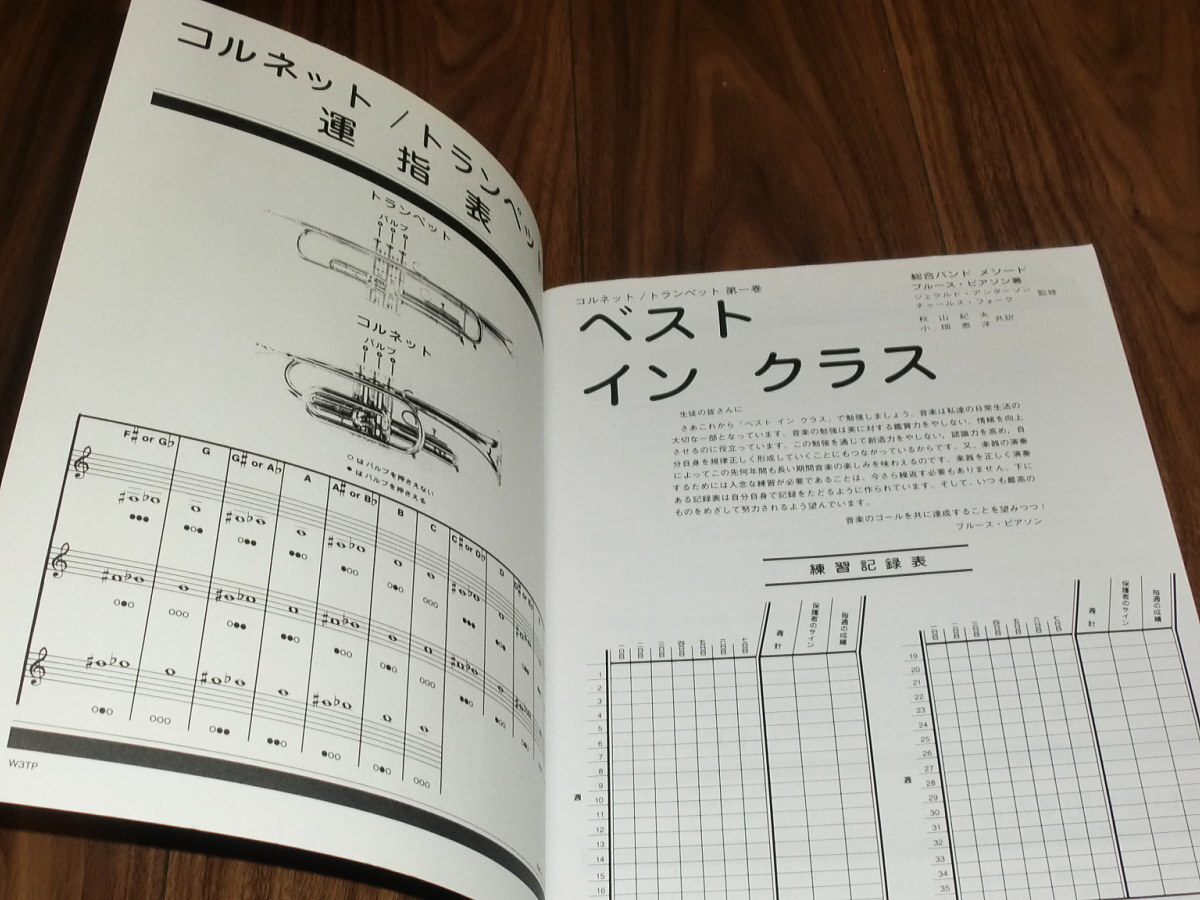 コルネット / トランペッ
運 指 表
トランペット
バルブ
コルネット
バルブ
○はバルブを押さえない
●はバルブを押さえる
F♯ or G♭
G
G♯ or A♭
A
A♯ or B♭
B
C
C♯ or D♭
D
W3TP
コルネット / トランペット 第一巻
総合バンド メソード
ブルース・ピアソン著
ジェラルド・アンダーソン
チャールス・フォーク
監修
秋 山 紀 夫
小 畑 恵 洋
共訳
ベスト
イン クラス
生徒の皆さんに
さあこれから「ベスト イン クラス」で勉強しましょう。音楽は私達の日常生活の
大切な一部となっています。音楽の勉強は美に対する鑑賞力をやしない、情緒を向上
させるのに役立っています。この勉強を通じて創造力をやしない、認識力を高め、自
分自身を規律正しく形成していくことにもつながっているからです。又、楽器の演奏
によってこの先何年間も長い期間音楽の楽しみを味わえるのです。楽器を正しく演奏
するためには入念な練習が必要であることは、今さら繰返す必要もありません。下に
ある記録表は自分自身で記録をたどるように作られています。そして、いつも最高の
ものをめざして努力されるよう望んでいます。
音楽のゴールを共に達成することを望みつつ!
ブルース・ピアソン
練習記録表
一日目
二日目
三日目
四日目
五日目
六日目
七日目
週 計
保護者のサイン
毎週の成績
週
1
2
3
4
5
6
7
8
9
10
11
12
13
14
15
16
一日目
二日目
三日目
四日目
五日目
六日目
七日目
週 計
保護者のサイン
毎週の成績
週
19
20
21
22
23
24
25
26
27
28
29
30
31
32
33
34
35